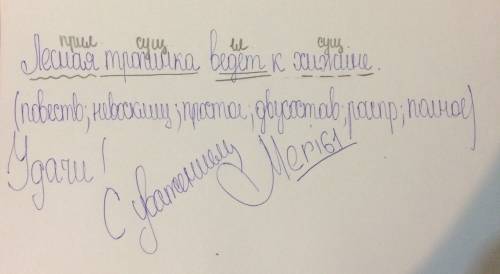 прил сущ гл сущ.
Лесная тропинка ведёт к хижине.
(повеств; невосклиц; простое; двусостав; распр; полное)
Удачи!
С уважением,
Meri61